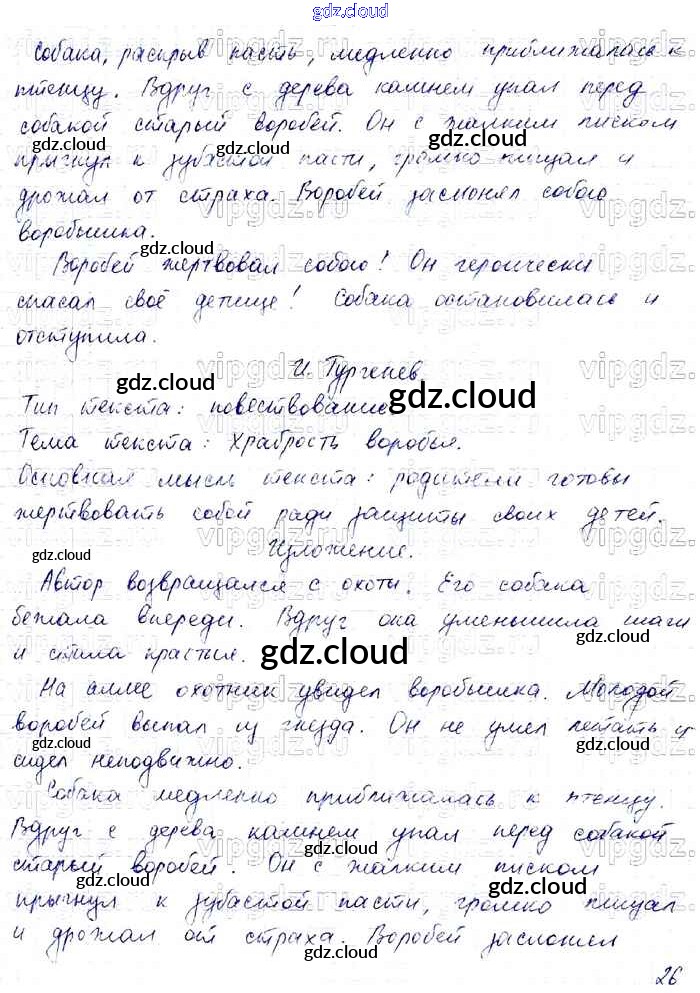 gdz.cloud
Собака, раскрыв пасть, медленно приближалась к
птенцу. Вдруг с дерева камнем упал перед
собакой старый воробей. Он с жалким писком
прыгнул к зубастой пасти, громко пищал и
дрожал от страха. Воробей заслонял собою
воробышка.
Воробей жертвовал собою! Он героически
спасал своё детище! Собака остановилась и
отступила.
И. Тургенев
Тип текста: повествование
Тема текста: Храбрость воробья.
Основная мысль текста: родители готовы
жертвовать собой ради защиты своих детей.
Изложение.
Автор возвращался с охоты. Его собака
бежала впереди. Вдруг она уменьшила шаги
и стала красться.
На аллее охотник увидел воробышка. Молодой
воробей выпал из гнезда. Он не умел летать и
сидел неподвижно.
Собака медленно приближалась к птенцу.
Вдруг с дерева камнем упал перед собакой
старый воробей. Он с жалким писком
прыгнул к зубастой пасти, громко пищал
и дрожал от страха. Воробей заслонял
26